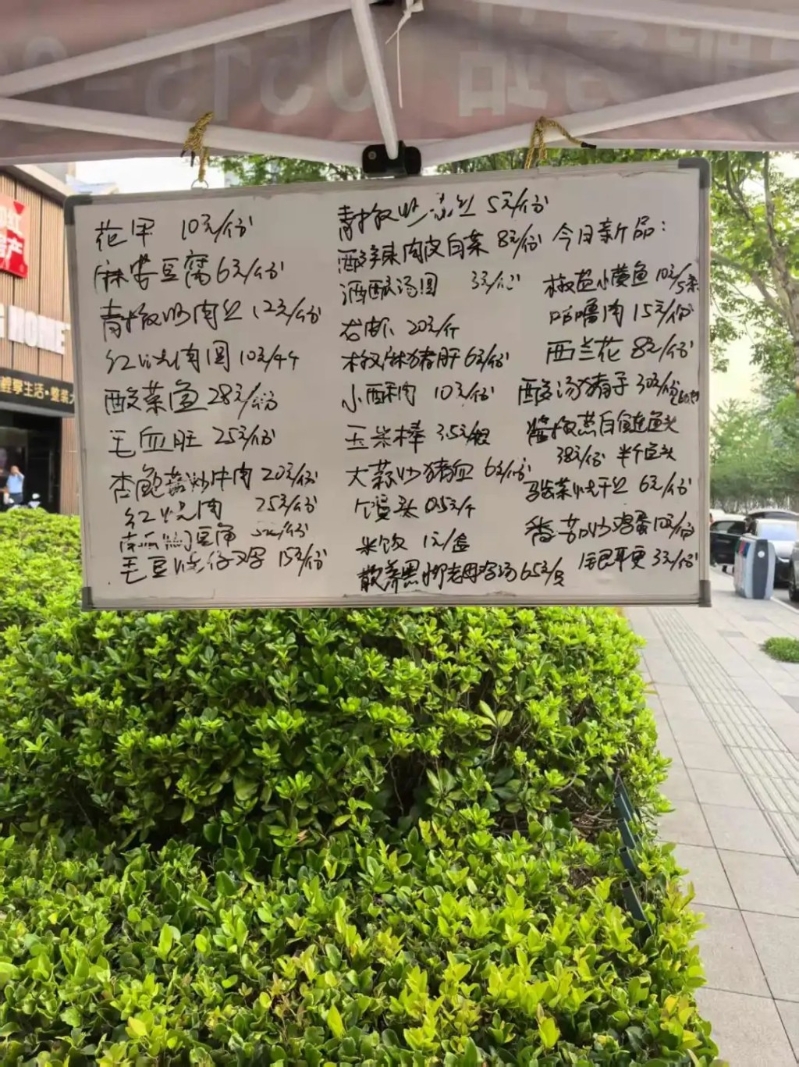 花甲 10元/份
麻婆豆腐 6元/份
青椒炒肉丝 12元/份
红烧肉圆 10元/4个
酸菜鱼 28元/份
毛血旺 25元/份
杏鲍菇炒牛肉 20元/份
红烧肉 25元/份
毛豆烧仔鸡 15元/份
青椒炒 5元/份
酸辣肉皮白菜 8元/份
酒酿汤圆 3元/
20元/个
椒麻猪肝 6元/份
小酥肉 10元/份
玉米棒 3.5元/根
大蒜炒猪血 6元/份
馒头 0.5元/个
米饭 1元/盒
散养黑脚老母鸡汤 65元/
今日新品：
椒盐小黄鱼 10元/5条
咕噜肉 15元/份
西兰花 8元/份
酸汤猪子 30元/份
酱椒蒸白鲢鱼头
38元/份 半个鱼头
烧干丝 6元/份
番茄炒鸡蛋 10元/份
3元/份
HOME
輕學生活·